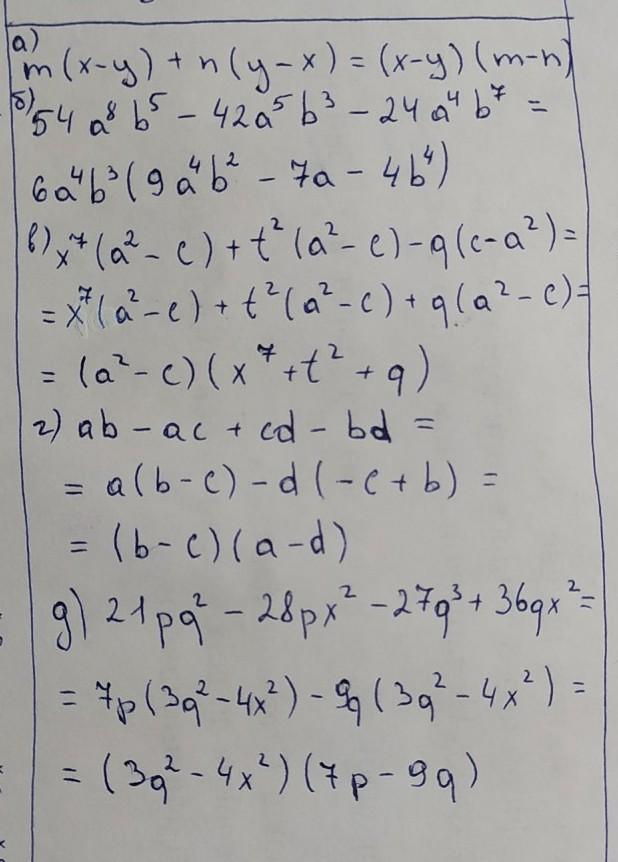 а)
m(x-y) + n(y-x) = (x-y)(m-n)
б) 54a⁸b⁵ - 42a⁵b³ - 24a⁴b⁷ =
6a⁴b³(9a⁴b² - 7a - 4b⁴)
в) x⁷(a²-c) + t²(a²-c) - q(c-a²) =
= x⁷(a²-c) + t²(a²-c) + q(a²-c) =
= (a²-c)(x⁷+t²+q)
г) ab - ac + cd - bd =
= a(b-c) - d(-c+b) =
= (b-c)(a-d)
д) 21pq² - 28px² - 27q³ + 36qx² =
= 7p(3q²-4x²) - 9q(3q²-4x²) =
= (3q²-4x²)(7p-9q)